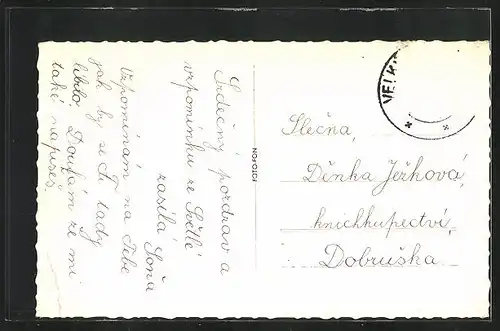 Srdečný pozdrav a
vzpomínku ze Světlé
zasílá Soňa
Vzpomínám na Tebe
jak by se Ti tady
líbilo. Doufám že mi
také napíšeš.
FOTOFON
VELK
Slečna,
Děnka Ježková,
knichkupectví,
Dobruška.